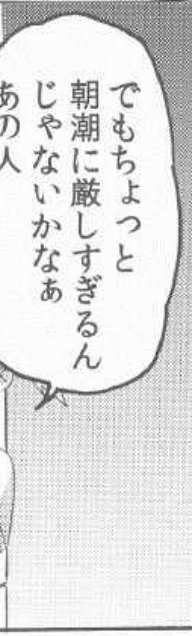 でもちょっと
朝潮に厳しすぎるん
じゃないかなぁ
あの人